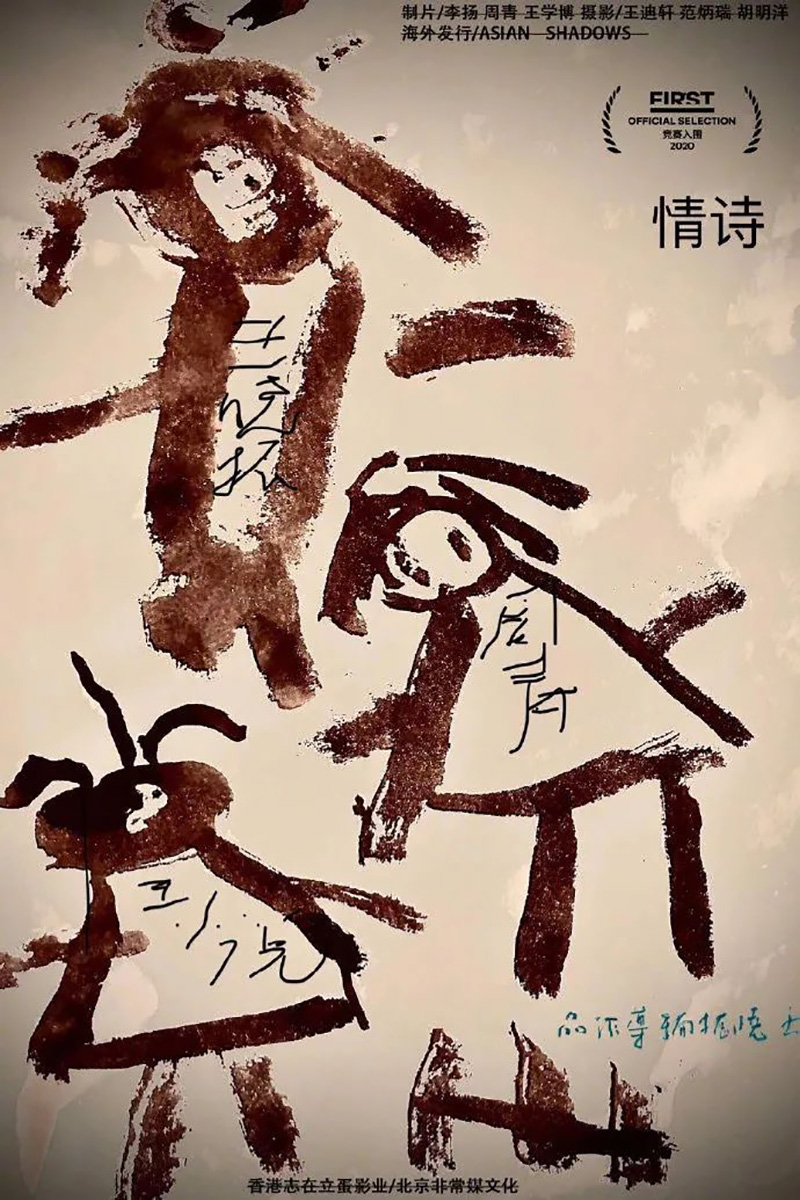 制片/李扬 周青 王学博 摄影/王迪轩 范炳瑞 胡明洋
海外发行/ASIAN SHADOWS
FIRST
OFFICIAL SELECTION
竞赛入围
2020
情诗
王晓振
周青
品作导编振晓王
香港志在立蛋影业/北京非常媒文化